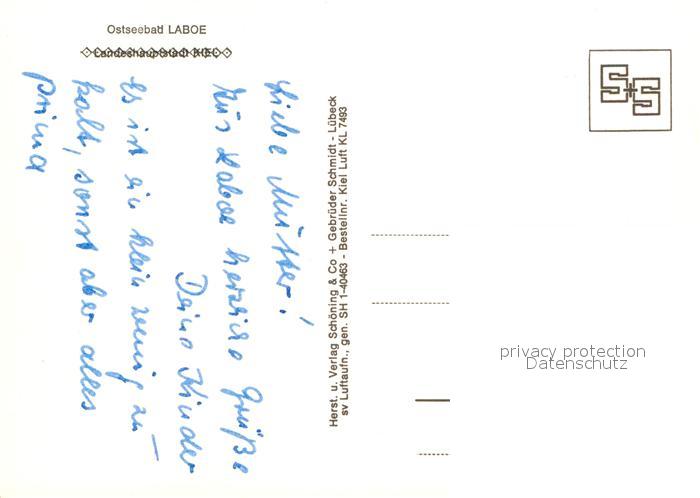 Ostseebad LABOE
Landeshauptstadt KIEL
Liebe Mutter!
Aus Laboe herzliche Grüße
Deine Kinder
Es ist ein klein wenig zu
kalt, sonst aber alles
prima
Herst. u. Verlag Schöning & Co + Gebrüder Schmidt - Lübeck
sv Luftaufn., gen. SH 1-40463 - Bestellnr. Kiel Luft KL 7493
S+S
privacy protection
Datenschutz